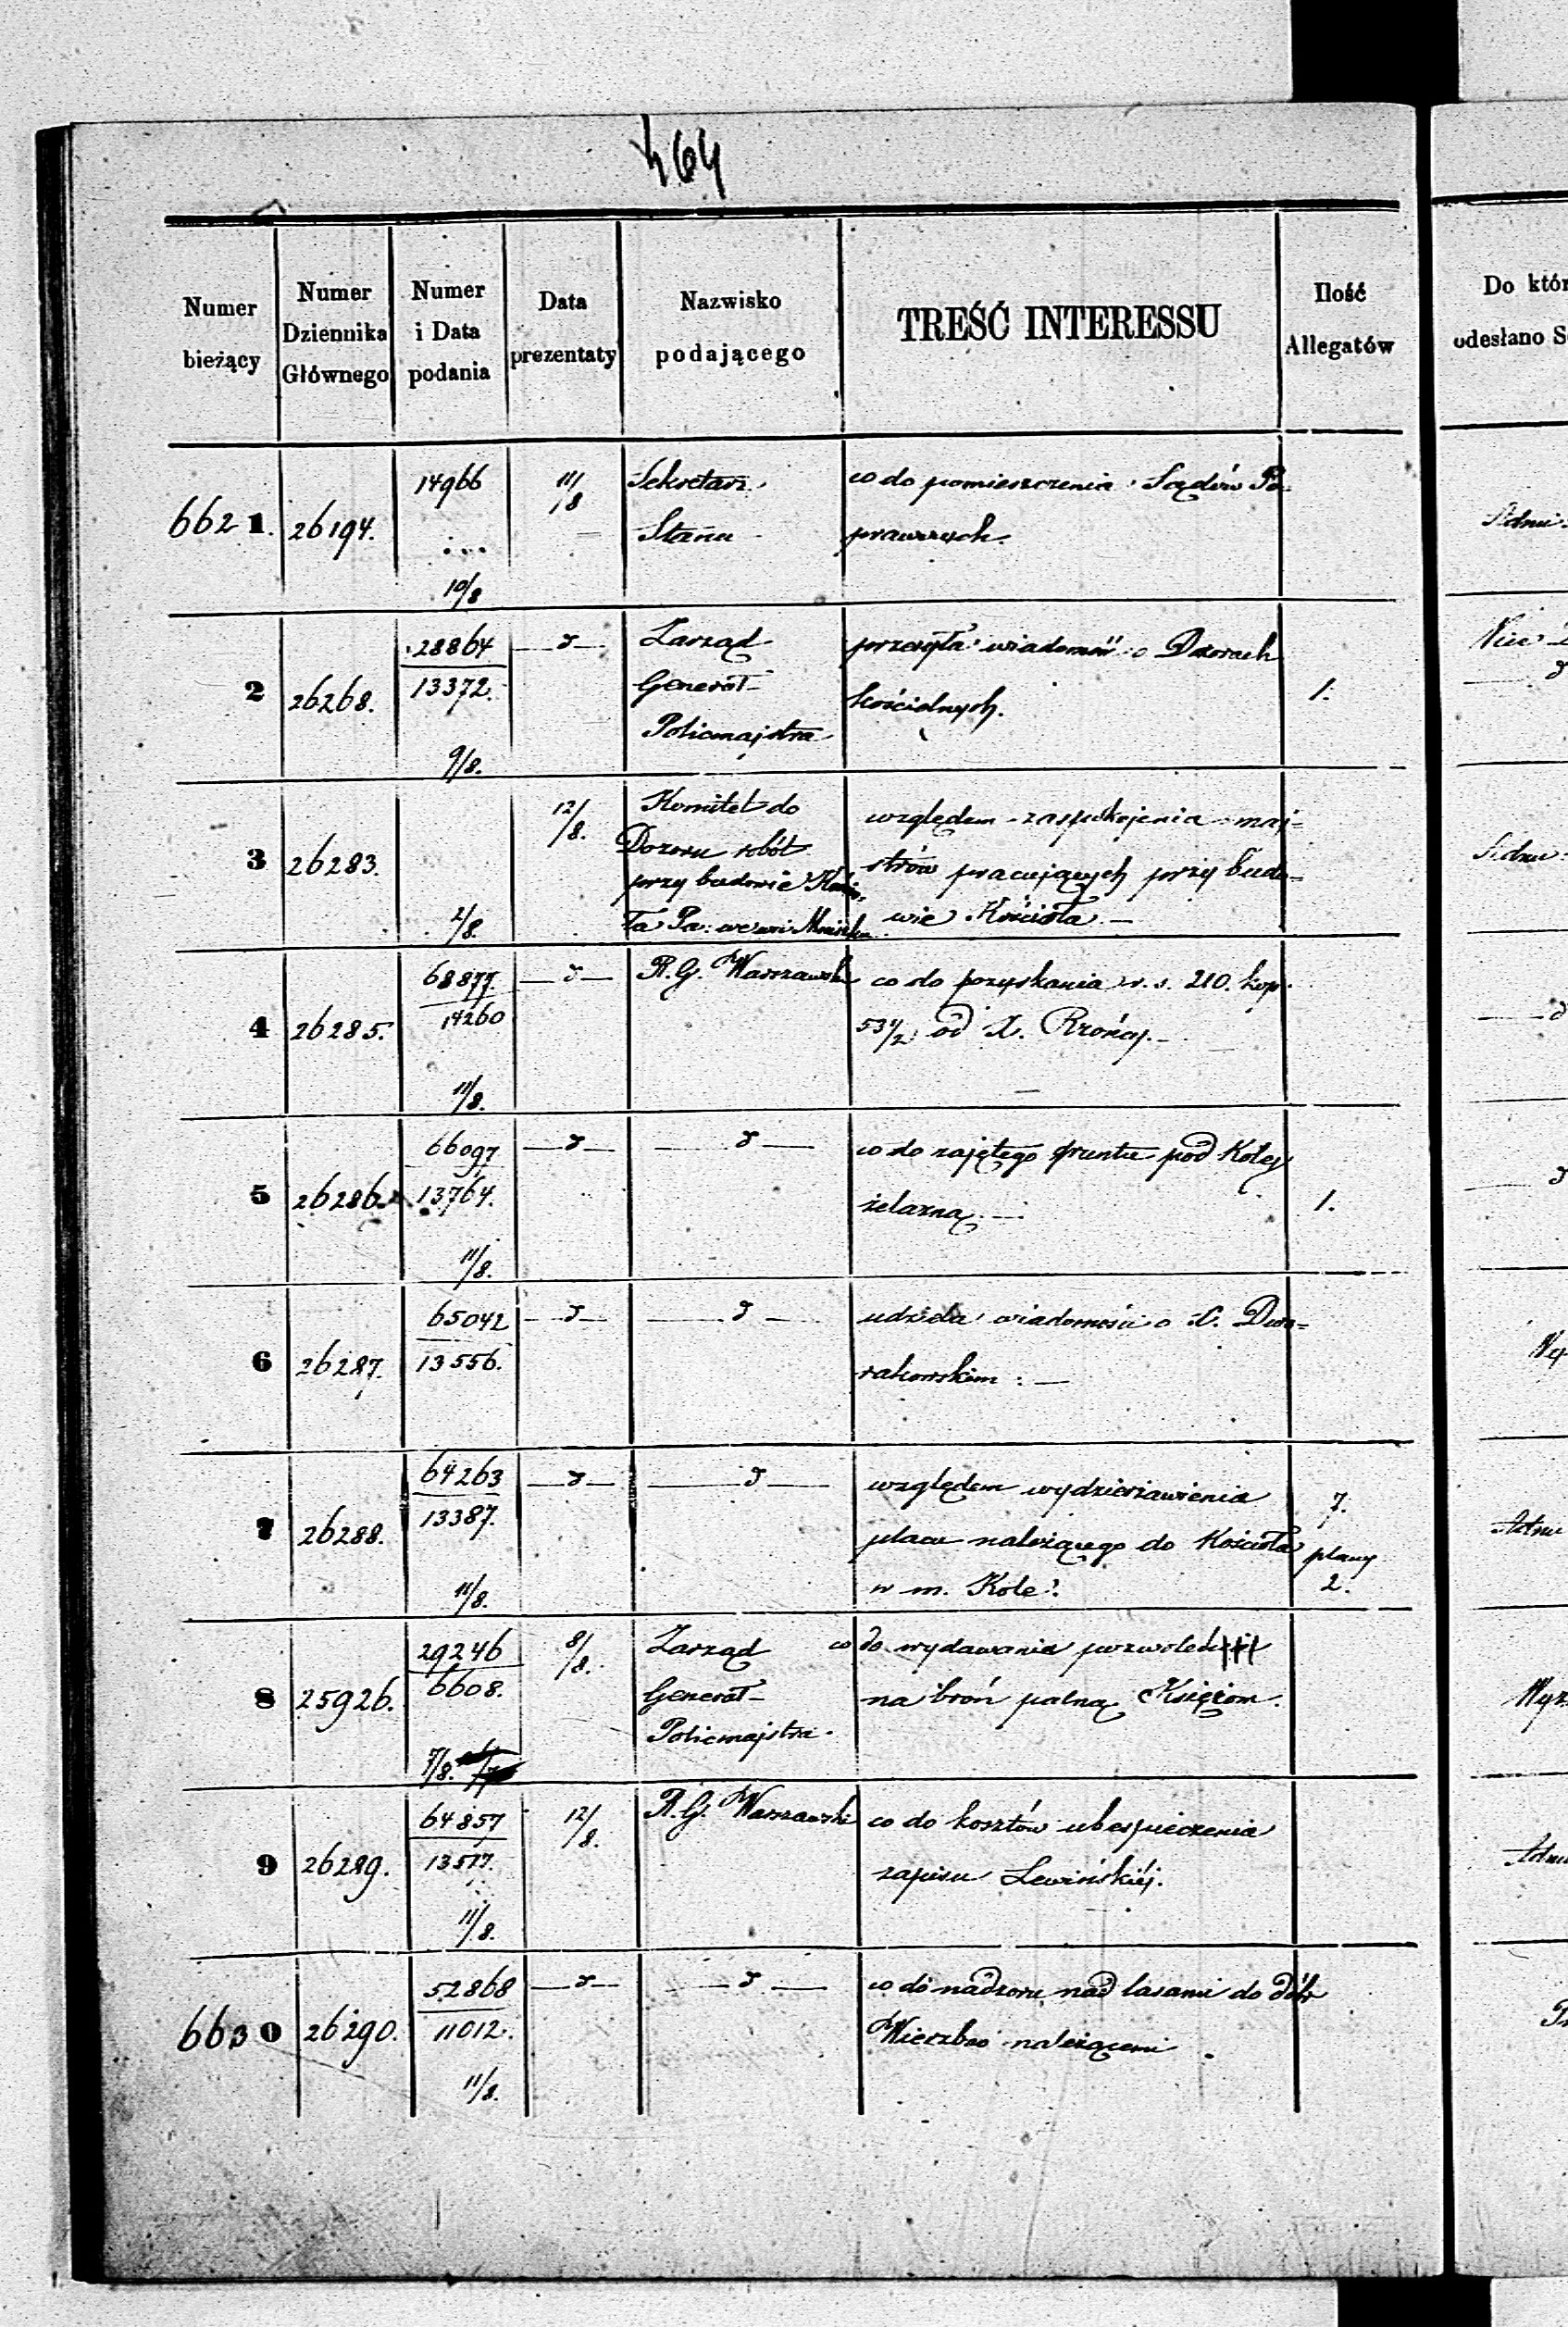 464
Numer bieżący
Numer Dziennika Głównego
Numer i Data podania
Data prezentaty
Nazwisko podającego
TREŚĆ INTERESSU
Ilość Allegatów
Do któr
odesłano S
6621. 26194. 14966 10/8 11/8 Sekretarz Stanu
co do pomieszczenia Sądów Po
prawczych.
2 26268. 28864 13372. 9/8. d Zarząd Generał Policmajstra
przesyła wiadomość o Dozorach
kościelnych.
1.
3 26283. 2/8. 12/8. Komitet do
Dozoru robót
przy budowie
ła Pa: we wsi
względem zaspokojenia maj=
strów pracujących przy budo=
wie Kościoła. —
4 26285. 68877. 14260 11/8. d R. G. Warszawski
co do pozyskania r. s. 210. kop.
53 1/2 od X. —
5 26286. 66097 13764. 11/8. d d
co do zajętego gruntu pod Kolej
żelazną. —
1.
6 26287. 65042 13556. d d
udziela wiadomości o X. Dwo=
rakowskim. —
7 26288. 64263 13387. 11/8. d d
względem wydzierżawienia
placu należącego do Kościoła
w m. Kole.
7.
plany
2.
8 25926. 29246 6608. 7/8. 8/8. Zarząd Generał Policmajstra
co do wydawania pozwoleń
na broń palną Księżom.
9 26289. 64857 13577. 11/8. 12/8. R. G. Warszawski
co do kosztów ubespieczenia
zapisu Lewińskiéj.
6630 26290. 52868 11012. 11/8. d d
co do nadzoru nad lasami do dóbr
Wierzbno należącemi